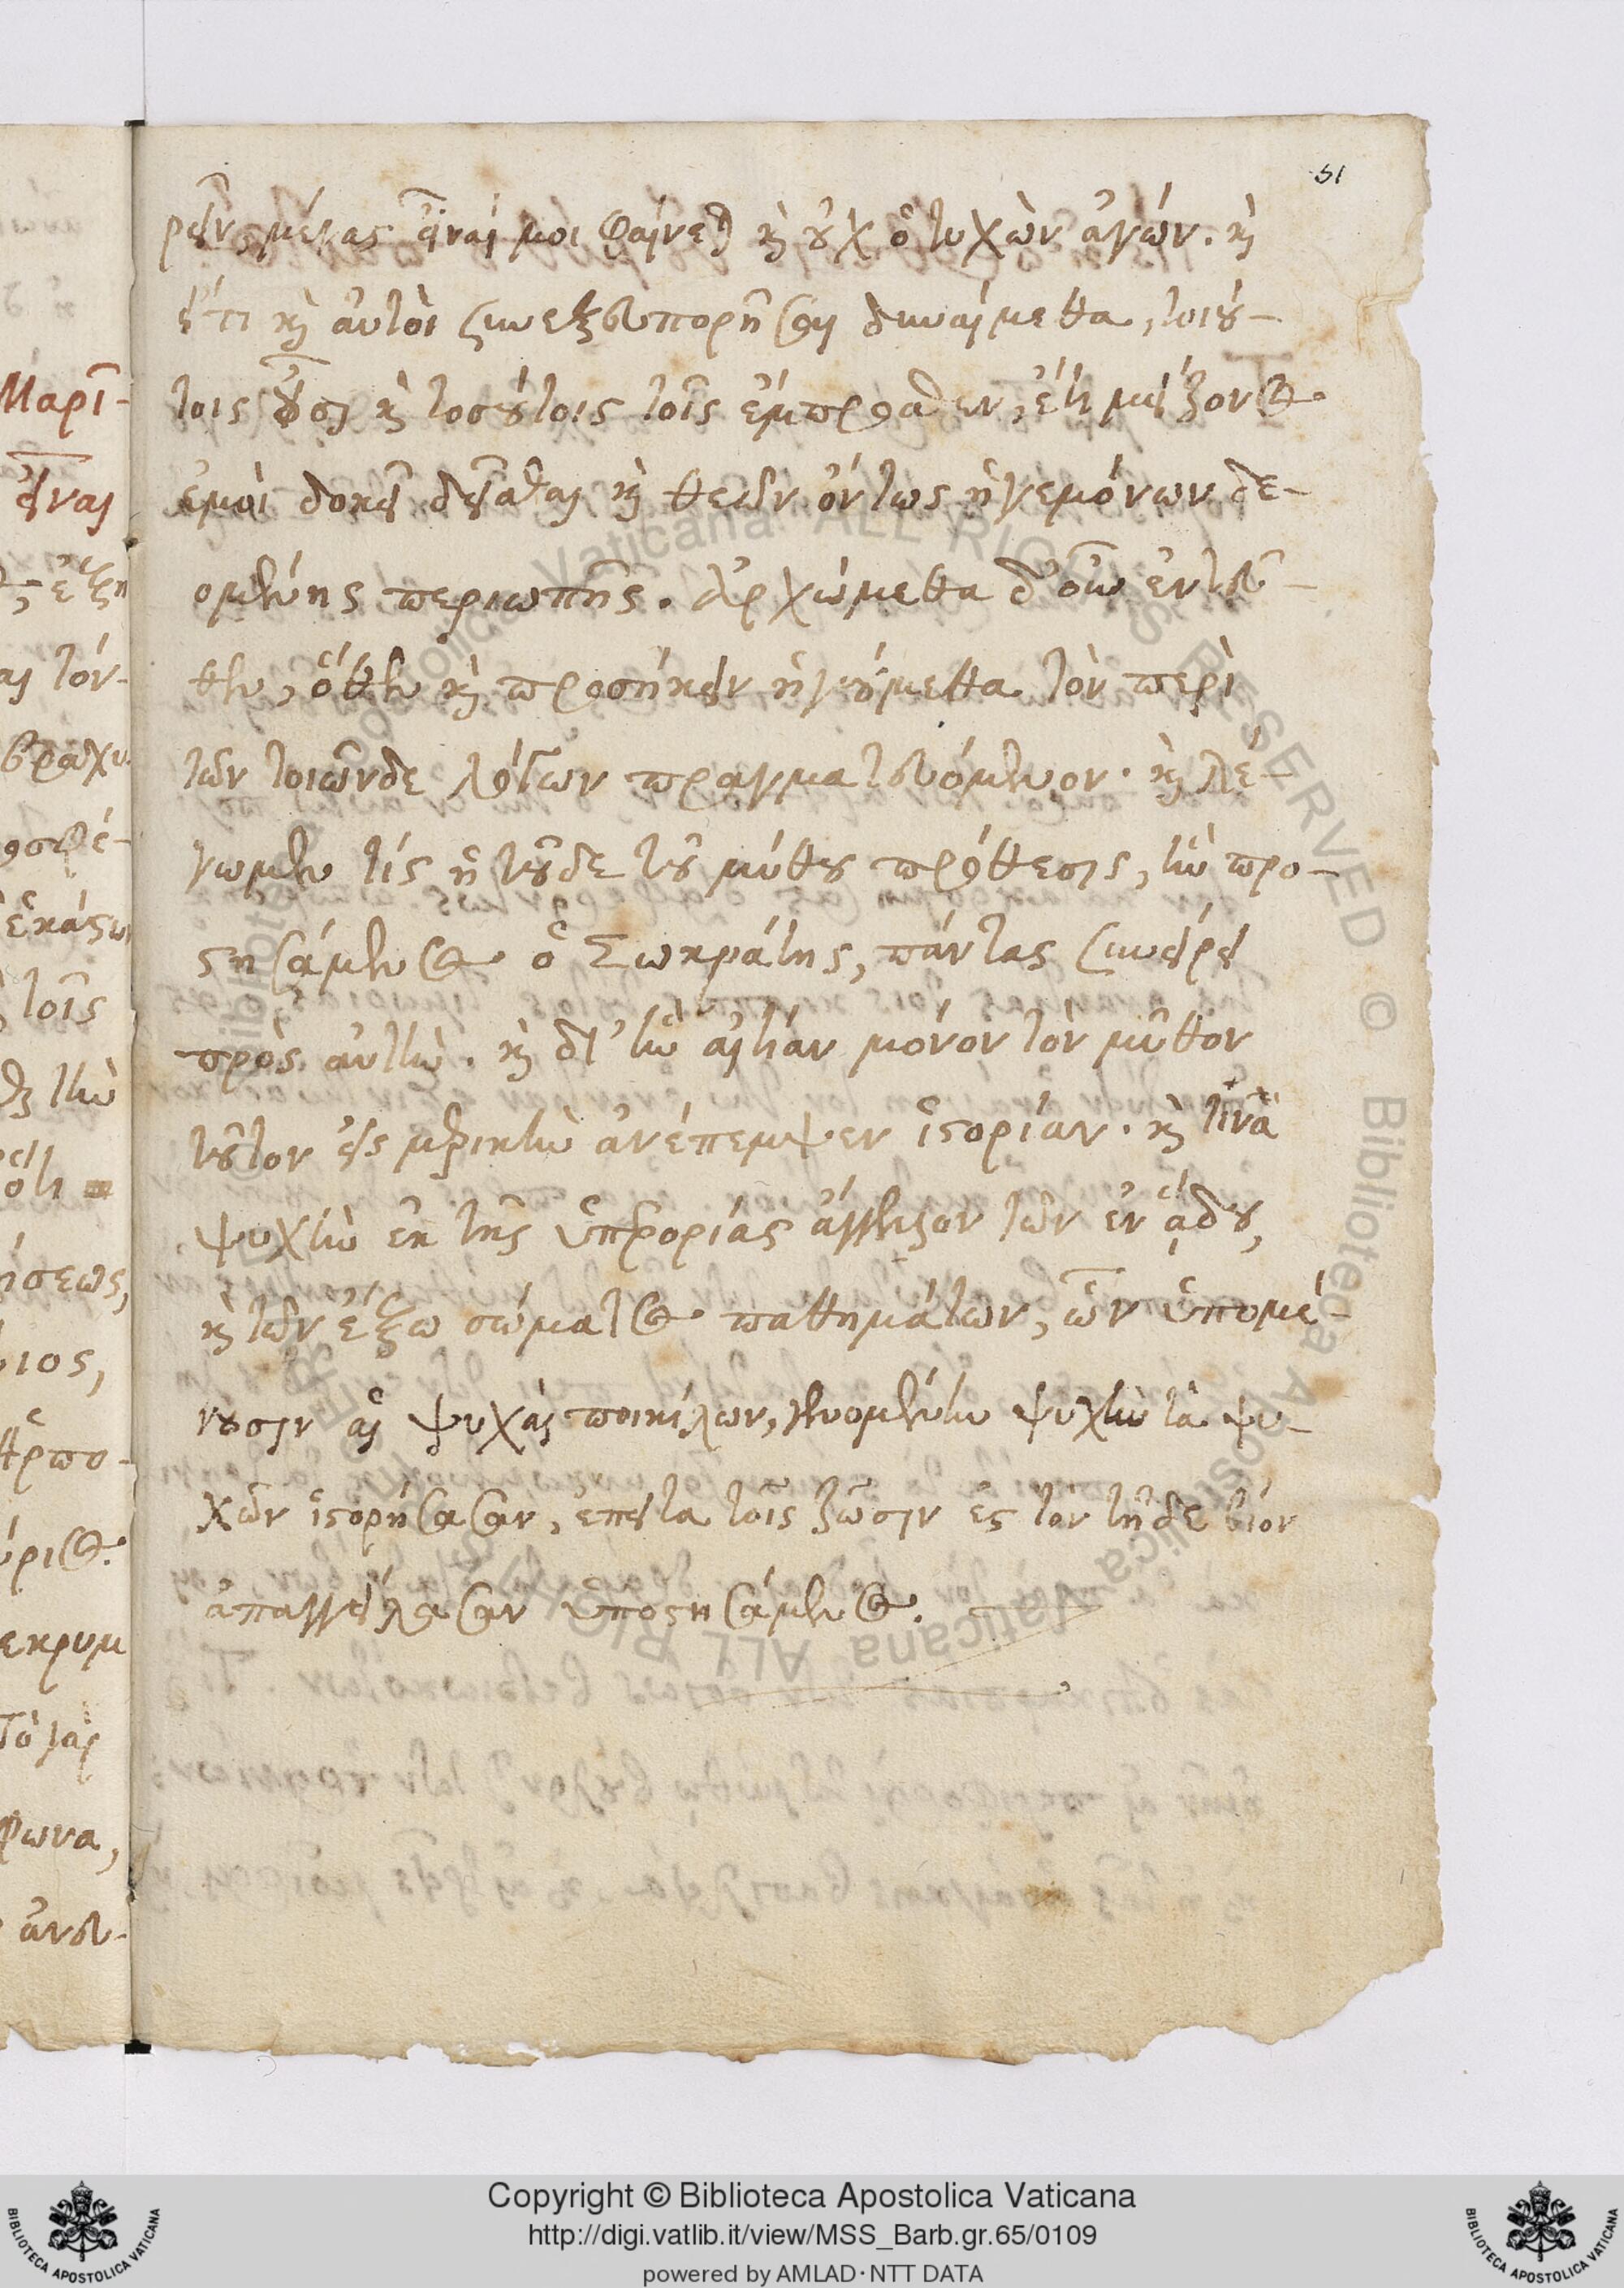 51
ρεῖν, μέγας εἶναί μοι φαίνεται καὶ οὐχ ὁ τυχὼν ἀγών. καὶ
εἴ τι καὶ αὐτοὶ συνεξευπορῆσαι δυναίμεθα, τοιού-
τοις οὖσι καὶ τοσούτοις τοῖς ἔμπροσθεν, ἔτι μείζονος
ἐμοὶ δοκεῖ δεῖσθαι καὶ θεῶν ὄντως ἡγεμόνων δε-
ομένης περιωπῆς. Ἀρχώμεθα δ' οὖν ἐντεῦ-
θεν, ὅθεν καὶ προσήκειν ἡγούμεθα τὸν περὶ
τῶν τοιῶνδε λόγων πραγματευόμενον. καὶ λέ-
γωμεν τίς ἡ τοῦδε τοῦ μύθου πρόθεσις, ἣν προ-
στησάμενος ὁ Σωκράτης, πάντας συνείρει
πρὸς αὐτήν. καὶ δι' ἣν αἰτίαν μόνον τὸν μῦθον
τοῦτον εἰς μεριστὴν ἀνέπεμψεν ἱστορίαν. καὶ τινὰ
ψυχὴν ἐκ τῆς ὑπερορίας ἄγγελον τῶν ἐν ᾅδου,
καὶ τῶν ἔξω σώματος παθημάτων, ὧν ὑπομέ-
νουσιν αἱ ψυχαὶ ποικίλων, γενομένην ψυχὴν τὰ ψυ-
χῶν ἱστορήσασαν, ἔπειτα τοῖς ζῶσιν ἐς τὸν τῇδε βίον
ἀπαγγείλασαν ὑποστησάμενος.
Μαρῖ-
εἶναι
βραχυ
τοῖς
τὴν
ότι
ήσεως,
ιος,
εκρυμ
Τὸ γὰρ
φωνα,
ἀνευ-
Copyright © Biblioteca Apostolica Vaticana
http://digi.vatlib.it/view/MSS_Barb.gr.65/0109
powered by AMLAD·NTT DATA
BIBLIOTECA APOSTOLICA VATICANA
BIBLIOTECA APOSTOLICA VATICANA